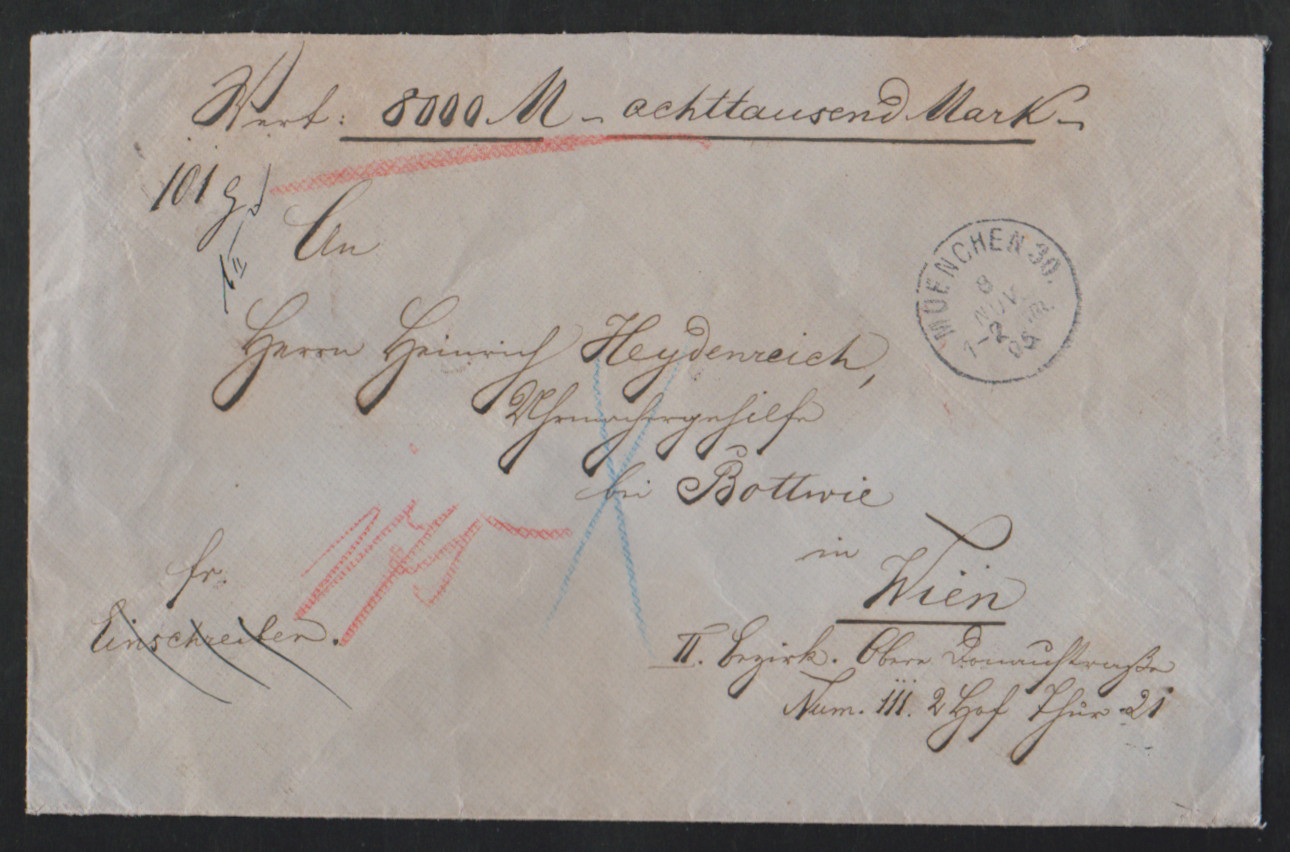 Wert: 8000 M – achttausend Mark –
101 g
An
MUENCHEN 30.
8
NOV
1-2 NM.
05
Herrn Heinrich Heydenreich,
Uhrmachergehilfe
bei Bottwie
in
Wien
fr.
Einschreiben.
II. Bezirk. Obere Donaustraße
Num. 111. 2 Hof Thür 21